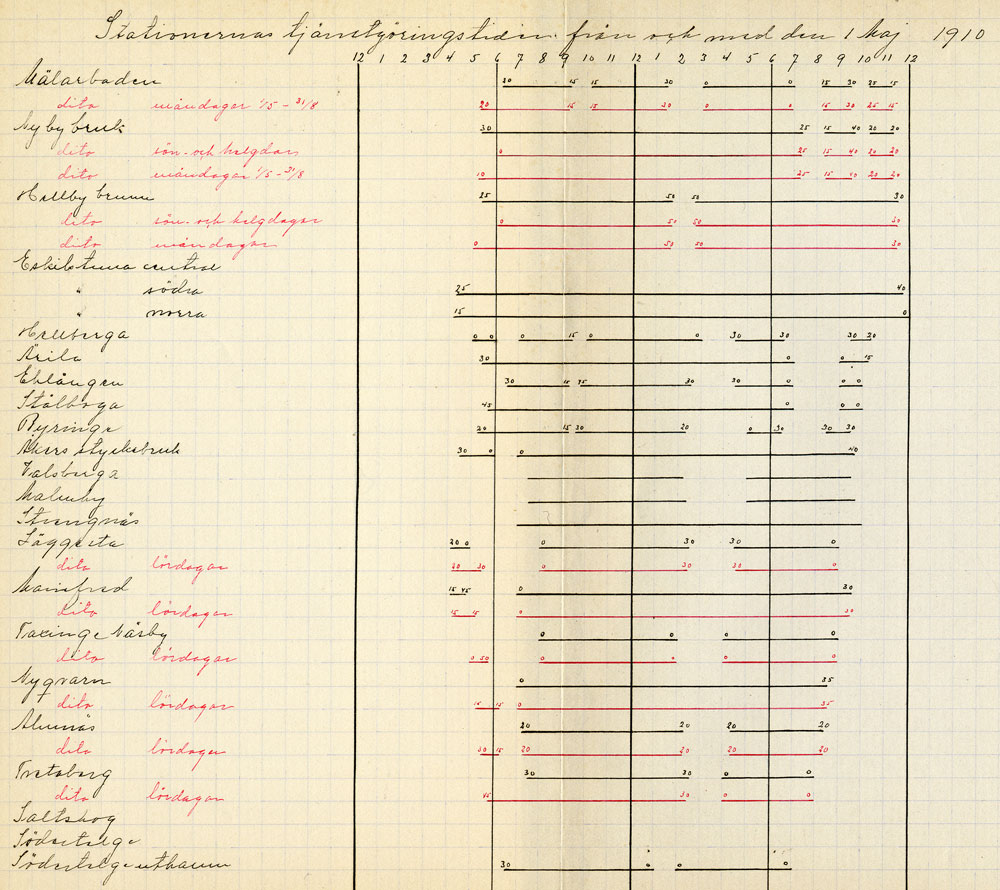 Stationernas tjänstgöringstider från och med den 1 Maj 1910
12 1 2 3 4 5 6 7 8 9 10 11 12 1 2 3 4 5 6 7 8 9 10 11 12
Mälarbaden 20 15 15 30 0 0 15 30 25 15
dito måndagar 1/5 - 31/8 20 15 15 30 0 0 15 30 25 15
Nyby bruk 30 25 15 40 20 20
dito sön- och helgdagar 0 25 15 40 20 20
dito måndagar 1/5 - 31/8 10 25 15 40 20 20
Hellby brunn 25 50 50 30
dito sön- och helgdagar 0 50 50 30
dito måndagar 0 50 50 30
Eskilstuna central
" södra 25 40
" norra 15 0
Helleberga 0 0 0 15 0 0 30 30 30 20
Ärila 30 0 0 15
Eklången 30 15 45 30 30 0 0 0
Stålboga 45 0 0 0
Byringe 20 15 30 20 0 30 30 30
Åkers styckebruk 30 0 0 40
Valsberga
Malmby
Strengnäs
Läggesta 20 0 0 30 30 0
dito lördagar 20 30 0 30 30 0
Mariefred 15 45 0 30
dito lördagar 15 15 0 30
Taxinge Näsby 0 0 0 0
dito lördagar 0 50 0 0 0
Nyqvarn 0 35
dito lördagar 15 15 0 35
Almnäs 20 20 20 20
dito lördagar 30 15 20 20 20 20
Tvetaberg 30 30 0 0
dito lördagar 45 30 0 0
Saltskog
Södertelge
Södertelge uthamn 30 0 0 0